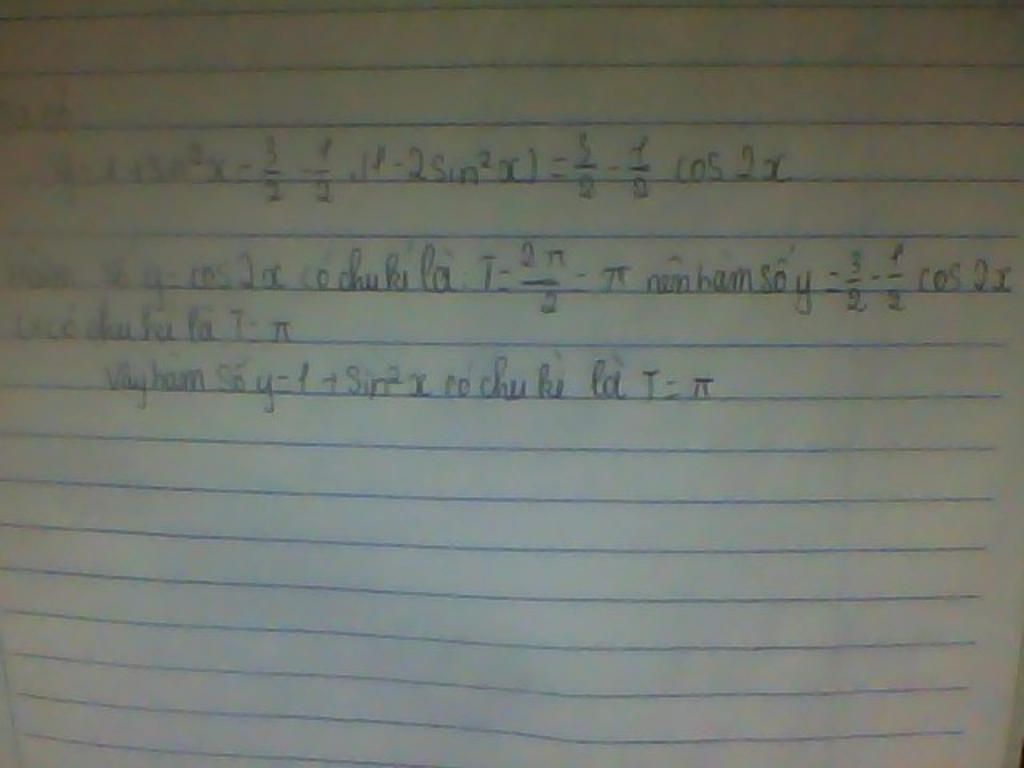 y = 1 + sin²x = 3/2 - 1/2 .(1 - 2sin²x) = 3/2 - 1/2 cos 2x
số y = cos 2x có chu kì là T = 2π/2 = π nên hàm số y = 3/2 - 1/2 cos 2x
có chu kì là T = π
Vậy hàm số y = 1 + sin²x có chu kì là T = π